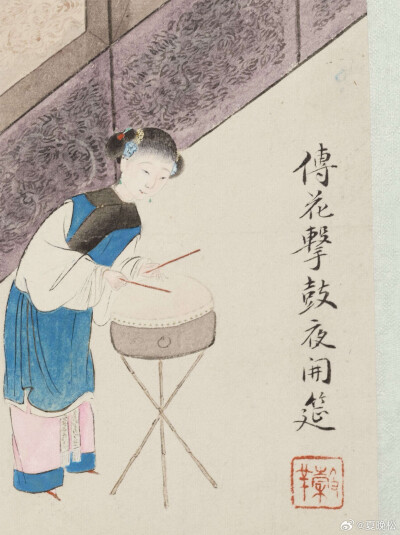 傳花擊鼓夜開筵
@夏晚松